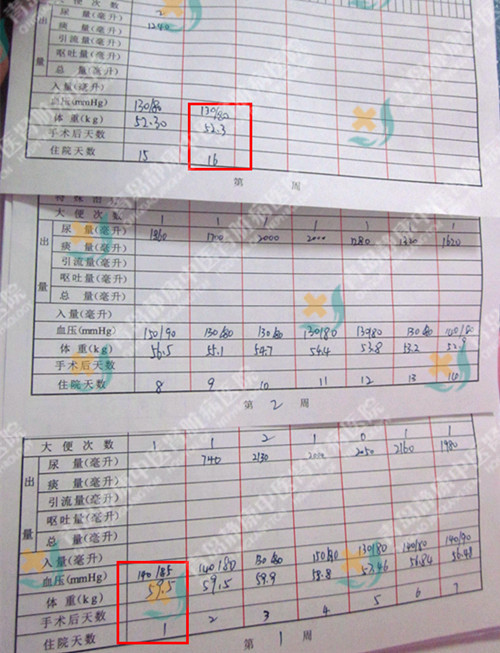 尿量(毫升) 2
痰量(毫升) 1240
引流量(毫升)
呕吐量(毫升)
总量(毫升)
出量
入量(毫升)
血压(mmHg) 130/80 130/80
体重(kg) 52.30 52.3
手术后天数
住院天数 15 16
第 周
大便次数 1 1 1 1 1 1
尿量(毫升) 1360 1700 2000 2000 1780 1320 1620
痰量(毫升)
引流量(毫升)
呕吐量(毫升)
总量(毫升)
出量
入量(毫升)
血压(mmHg) 150/90 130/80 130/80 130/80 130/80 130/80 140/80
体重(kg) 56.5 55.1 54.7 54.4 53.8 53.2 52.9
手术后天数
住院天数 8 9 10 11 12 13 14
第 2 周
大便次数 1 1 2 1 0 1 1
尿量(毫升) 740 2130 2050 2160 1980
痰量(毫升)
引流量(毫升)
呕吐量(毫升)
总量(毫升)
出量
入量(毫升)
血压(mmHg) 140/85 140/80 130/80 150/90 130/80 140/80 140/90
体重(kg) 59.5 59.5 59.9 58.8 57.46 56.84 56.48
手术后天数
住院天数 1 2 3 4 5 6 7
第 1 周